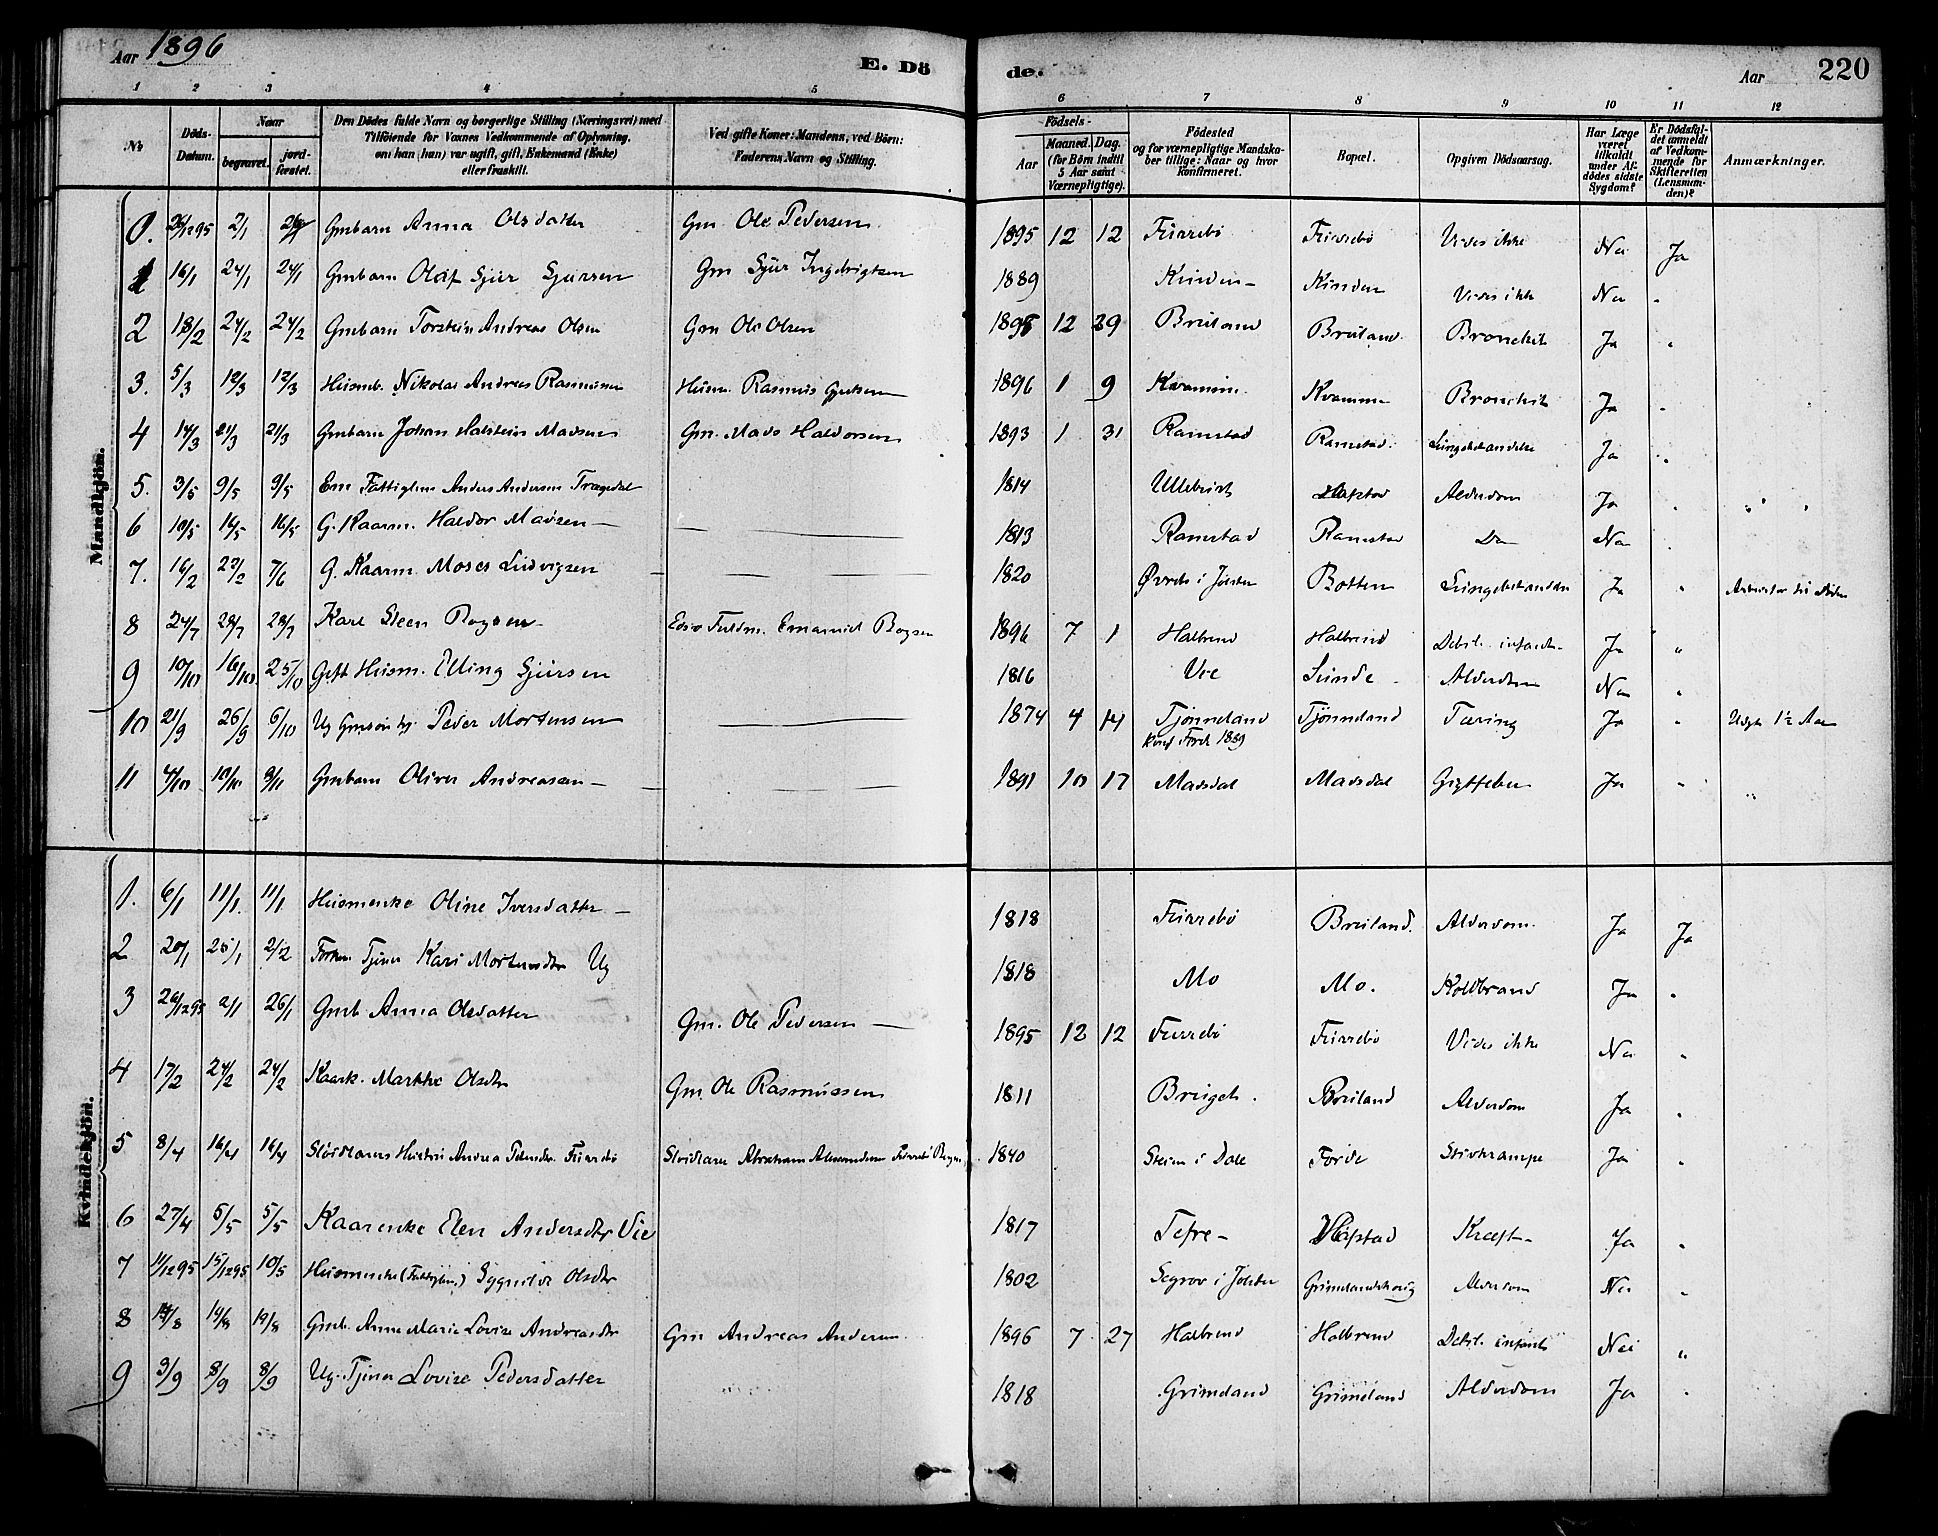 Aar 1896 E. Dö de. Aar 220
1 2 3 4 5 6 7 8 9 10 11 12
No
Döds-Datum.
Naar begravet. jordfæstet.
Den Dödes fulde Navn og borgerlige Stilling (Næringsvei) med Tilföiende for Voxnes Vedkommende af Oplysning, om han (hun) var ugift, gift, Enkemand (Enke) eller fraskilt.
Ved gifte Koner: Mandens, ved Börn: Faderens Navn og Stilling.
Födsels- Aar Maaned. Dag. (for Börn indtil 5 Aar samt Værnepligtige).
Födested og for værnepligtige Mandskaber tillige: Naar og hvor konfirmeret.
Bopæl.
Opgiven Dödsaarsag.
Har Læge været tilkaldt under Afdödes sidste Sygdom?
Er Dödsfaldet anmeldt af Vedkommende for Skifteretten (Lensmanden)?
Anmærkninger.
Mandkjön.
0. 26/12 95 2/1 Gmbarn Anna Olsdatter Gm Ole Pedersen 1895 12 12 Furrebö Furrebö Vides ikke Nei Ja
1 16/1 24/1 24/1 Gmbarn Olaf Sjur Sjursen Gm Sjur Ingebrigtsen 1889 Kinden Vides ikke Nei "
2 18/2 24/2 24/2 Gmbarn Torstein Andreas Olsen Gm Ole Olsen 12 29 Bruland Bruland. Bronchit Ja "
3. 5/3 12/3 12/3 Husmb. Nikolai Andreas Rasmussen Husm. Rasmus 1896 1 9 Kvamme Kvamme Bronchit Ja "
4 14/3 21/3 21/3 Gmbarn Johan Halstein Madsen Gm. Mads Haldorsen 1893 1 31 Ramstad Ramstad. Lungebetændelse Ja "
5. 3/5 9/5 9/5 Em Fattiglem Anders Andersen Trægdal 1814 Hafstad Alderdom Ja " " "
6 10/5 16/5 16/5 G. Kaarm. Haldor Madsen — 1813 Ramstad Ramstad Do Nei "
7. 16/2 7/6 G. Kaarm Moses Ludvigsen 1820 i Jölster Botten Lungebetændelse Ja "
8 24/7 28/7 28/7 Karl Steen Bogsen Emanuel Bogsen 1896 7 1 Halbrend Halbrend Debil. infant. Ja "
9 10/10 16/10 25/10 Gift Husm. Elling Sjursen 1816 Vie Sunde Alderdom Nei "
10 21/9 26/9 6/10 Ug Gmsön Peder Mortensen 1874 4 14 Tjönneland Tjönneland Tæring Ja " 1½ Aar
Konf Förde 1889
11 4/10 10/10 8/11 Gmbarn Oliver Andreassen — 1891 10 17 Madsdal Madsdal Gigtfeber Ja " "
Kvindekjön.
1. 6/1 11/1. 11/1. Husmenke Oline Iversdatter — 1818 Furrebö Bruland. Alderdom. Ja Ja
2 20/1 2/2 Tjener Kari Mortensdtr Ug 1818 Mo Mo. Koldbrand Ja "
3 26/12 95 2/1 26/1 Gmb Anna Olsdatter Gm. Ole Pedersen 1895 12 12 Furrebö Furrebö Vides ikke Nei "
4 17/2 24/2 24/2 Kaark. Marthe Olsdtr Gm. Ole Rasmussen 1811 Bruland Alderdom Ja "
5 8/4 16/4 16/4 Hustru Andrea Furrebö Abraham 1840 Steien i Dale Förde Stivkrampe Ja "
6 27/4 5/5 5/5 Kaarenke Elen Andersdtr Vie 1817 Tefre — Hafstad Kræft — Ja "
7 11/12 95 15/12 95 10/5 Husmenke (Fattiglem) Olsdtr 1802 Segrov i Jölster Alderdom Nei "
8 14/8 19/8 19/8 Gmb. Anne Marie Lovise Andreasdtr Gm Andreas Andersen 1896 7 27 Halbrend Halbrend Debil. infant. Nei "
9 3/9 8/9 8/9 Ug. Tjener Lovise Pedersdatter 1818 Grimeland Grimeland Alderdom Ja "